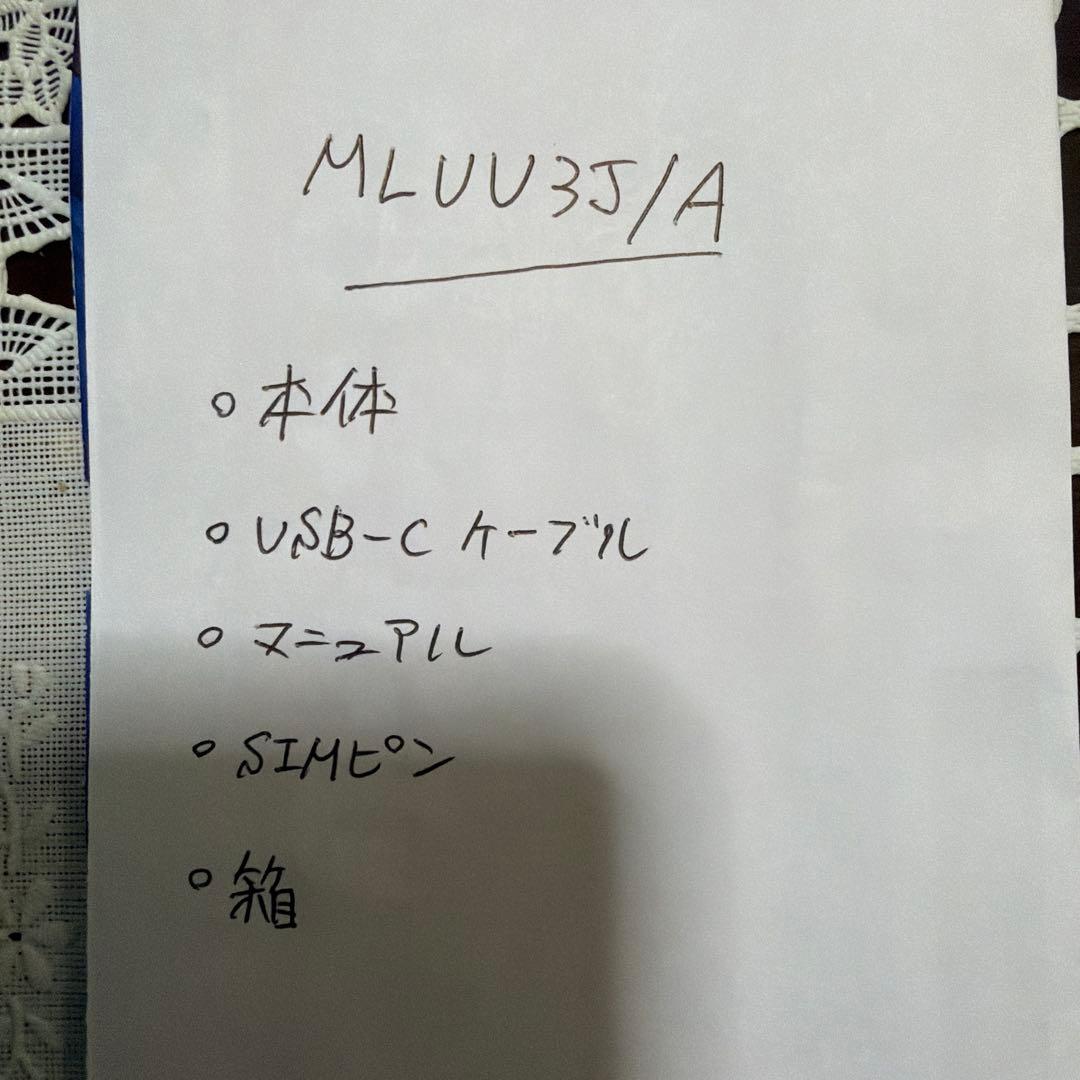 MLUU3J/A
○ 本体
○ USB-C ケーブル
○ マニュアル
○ SIMピン
○ 箱